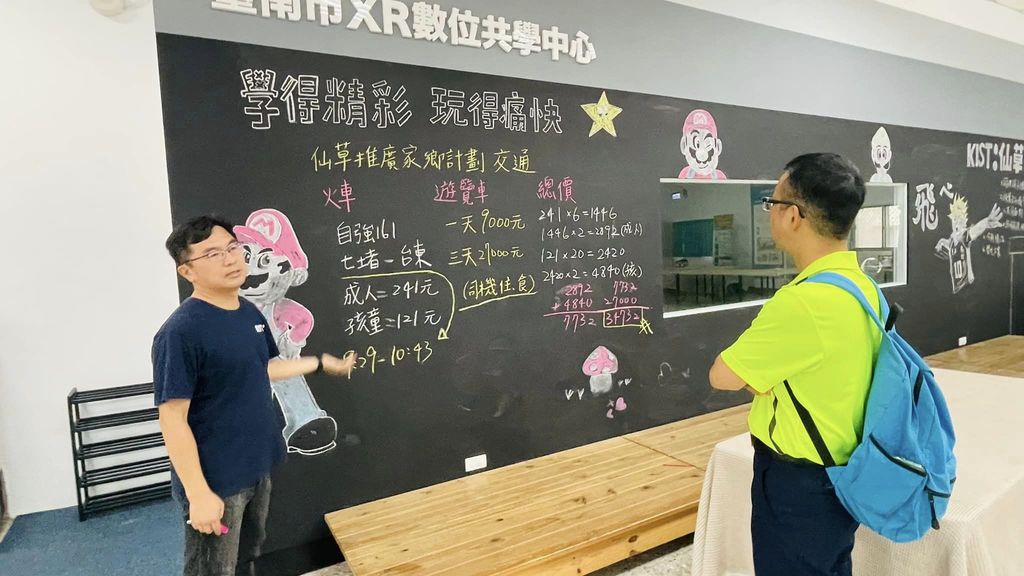 臺南市XR數位共學中心
學得精彩 玩得痛快
仙草推廣家鄉計劃 交通
火車
自強161
七堵-台東
成人=241元
孩童=121元
9:29-10:43
遊覽車
一天9000元
三天27000元
(司機住.食)
總價
241×6=1446
1446×2=2892(成人)
121×20=2420
2420×2=4840(孩)
2892
+4840
7732
7732
27000
34732
KIST:仙草
飛
心